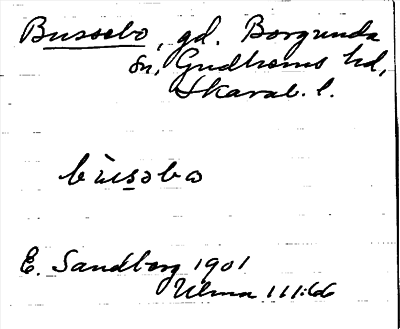 Bussebo, gd. Borgunda
sn, Gudhems hd,
Skarab. l.
bùsobo
E. Sandberg 1901
Ulma 111:66